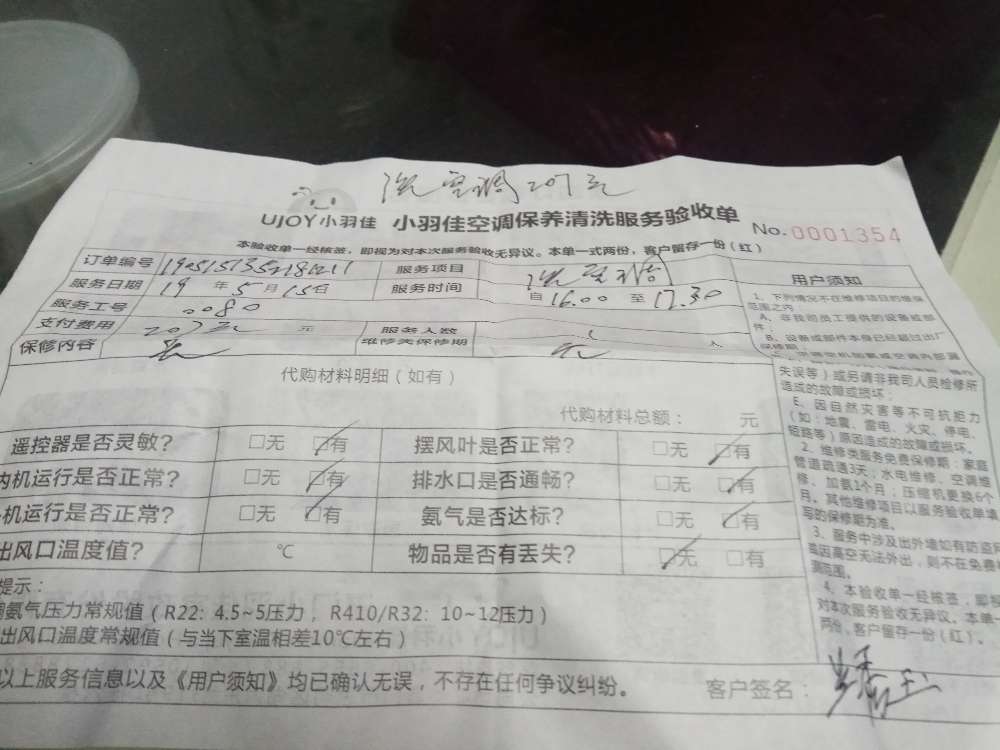 洗空调207元
UJOY小羽佳 小羽佳空调保养清洗服务验收单
No.0001354
本验收单一经核签，即视为对本次服务验收无异议。本单一式两份，客户留存一份（红）
订单编号 服务项目 洗空调
用户须知
服务日期 19年5月15日 服务时间 自16.00至17.30
服务工号 0080
支付费用 207元 元 服务人数 1 人
保修内容 无 维修类保修期 无
1、下列情况不在维修项目的维保
范围之内
A、非我司员工提供的设备或部
件；
B、设备或部件本身已经超过出厂
保修期；
失误等）或另请非我司人员检修所
造成的故障或损坏；
E、因自然灾害等不可抗拒力
（如：地震、雷电、火灾、停电、
短路等）原因造成的故障或损坏。
2、维修类服务免费保修期：家庭
管道疏通3天，水电维修、空调维
修、加氨1个月；压缩机更换6个
月。其他维修项目以服务验收单填
写的保修期为准。
3、服务中涉及出外墙如有防盗网
或因高空无法外出，则不在免费
测范围。
4、本验收单一经核签，即视
对本次服务验收无异议。本单一
两份，客户留存一份（红）。
代购材料明细（如有）
代购材料总额： 元
遥控器是否灵敏？ □无 □有 摆风叶是否正常？ □无 □有
内机运行是否正常？ □无 □有 排水口是否通畅？ □无 □有
机运行是否正常？ □无 □有 氨气是否达标？ □无 □有
出风口温度值？ ℃ 物品是否有丢失？ □无 □有
提示：
调氨气压力常规值（R22：4.5~5压力，R410/R32：10~12压力）
出风口温度常规值（与当下室温相差10℃左右）
以上服务信息以及《用户须知》均已确认无误，不存在任何争议纠纷。 客户签名：